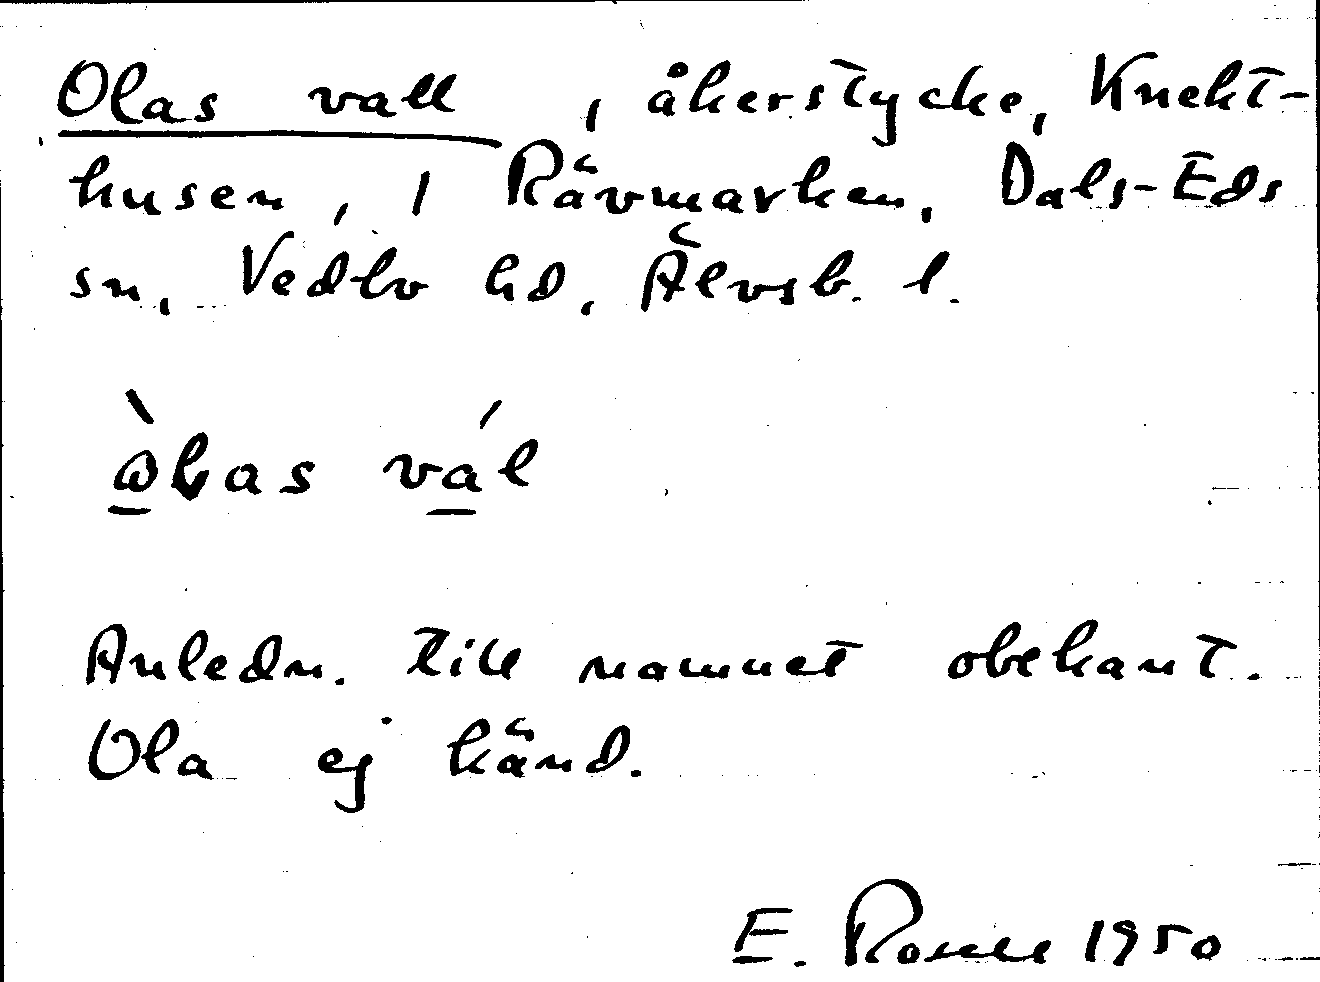 Olas vall, åkerstycke, Knekt-
husen, 1 Rävmarken, Dals-Eds
sn, Vedbo hd, Älvsb. l.
ὼḷas vál
Anledn. till namnet obekant.
Ola ej känd.
E. Rosell 1950